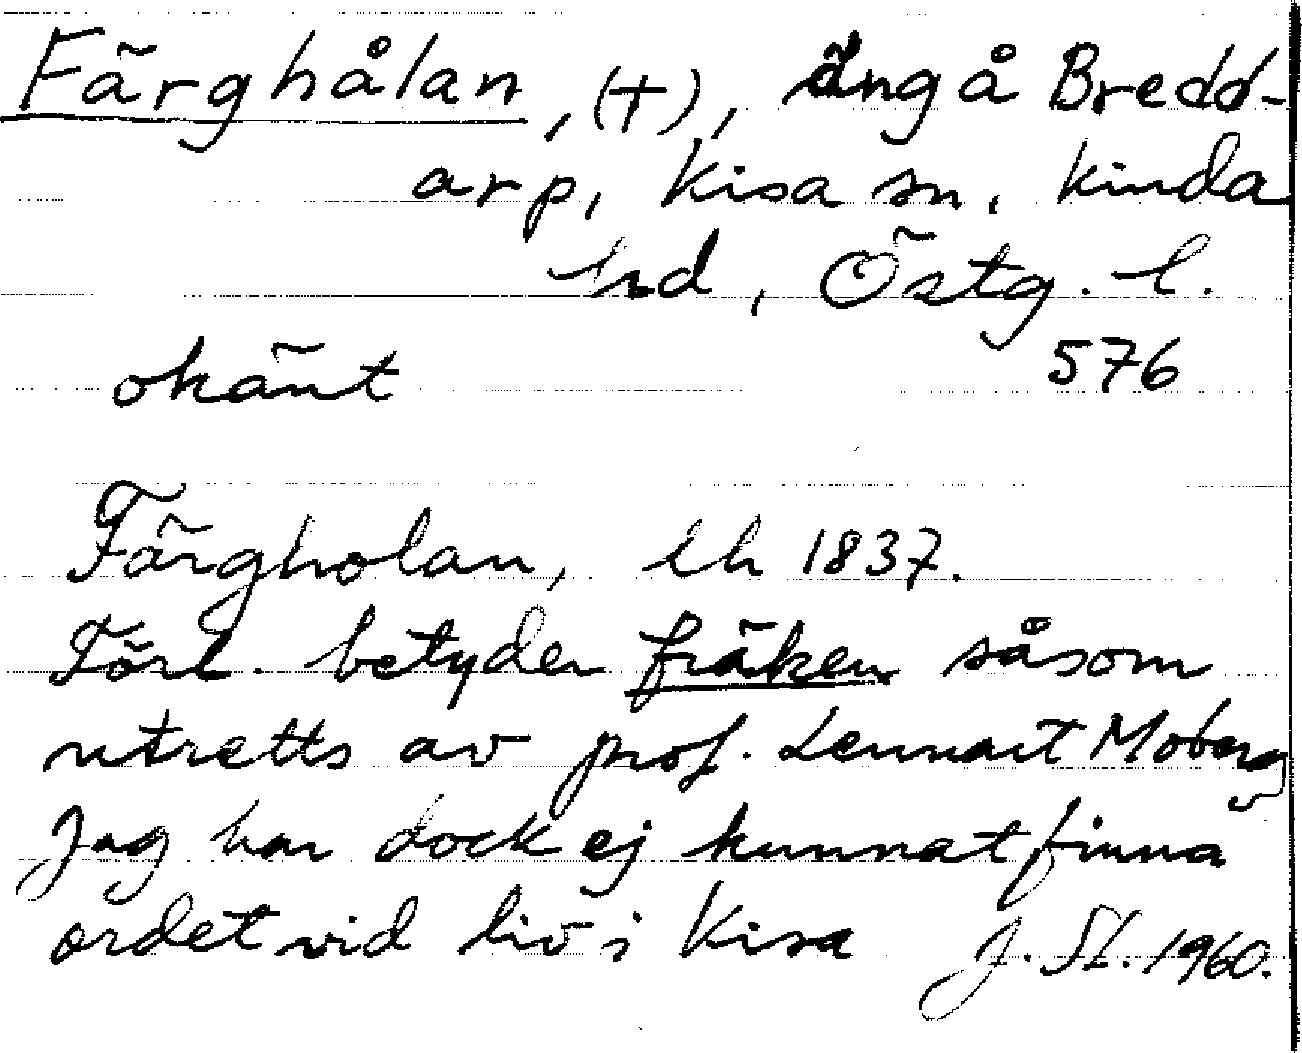 Färghålan, (†), äng å Bredd-
arp, Kisa sn, Kinda
hd, Östg. l.
okänt 576
Färgholan, lh 1837.
Förl. betyder fräken såsom
utretts av prof. Lennart Moberg
Jag har dock ej kunnat finna
ordet vid liv i Kisa J. St. 1960.